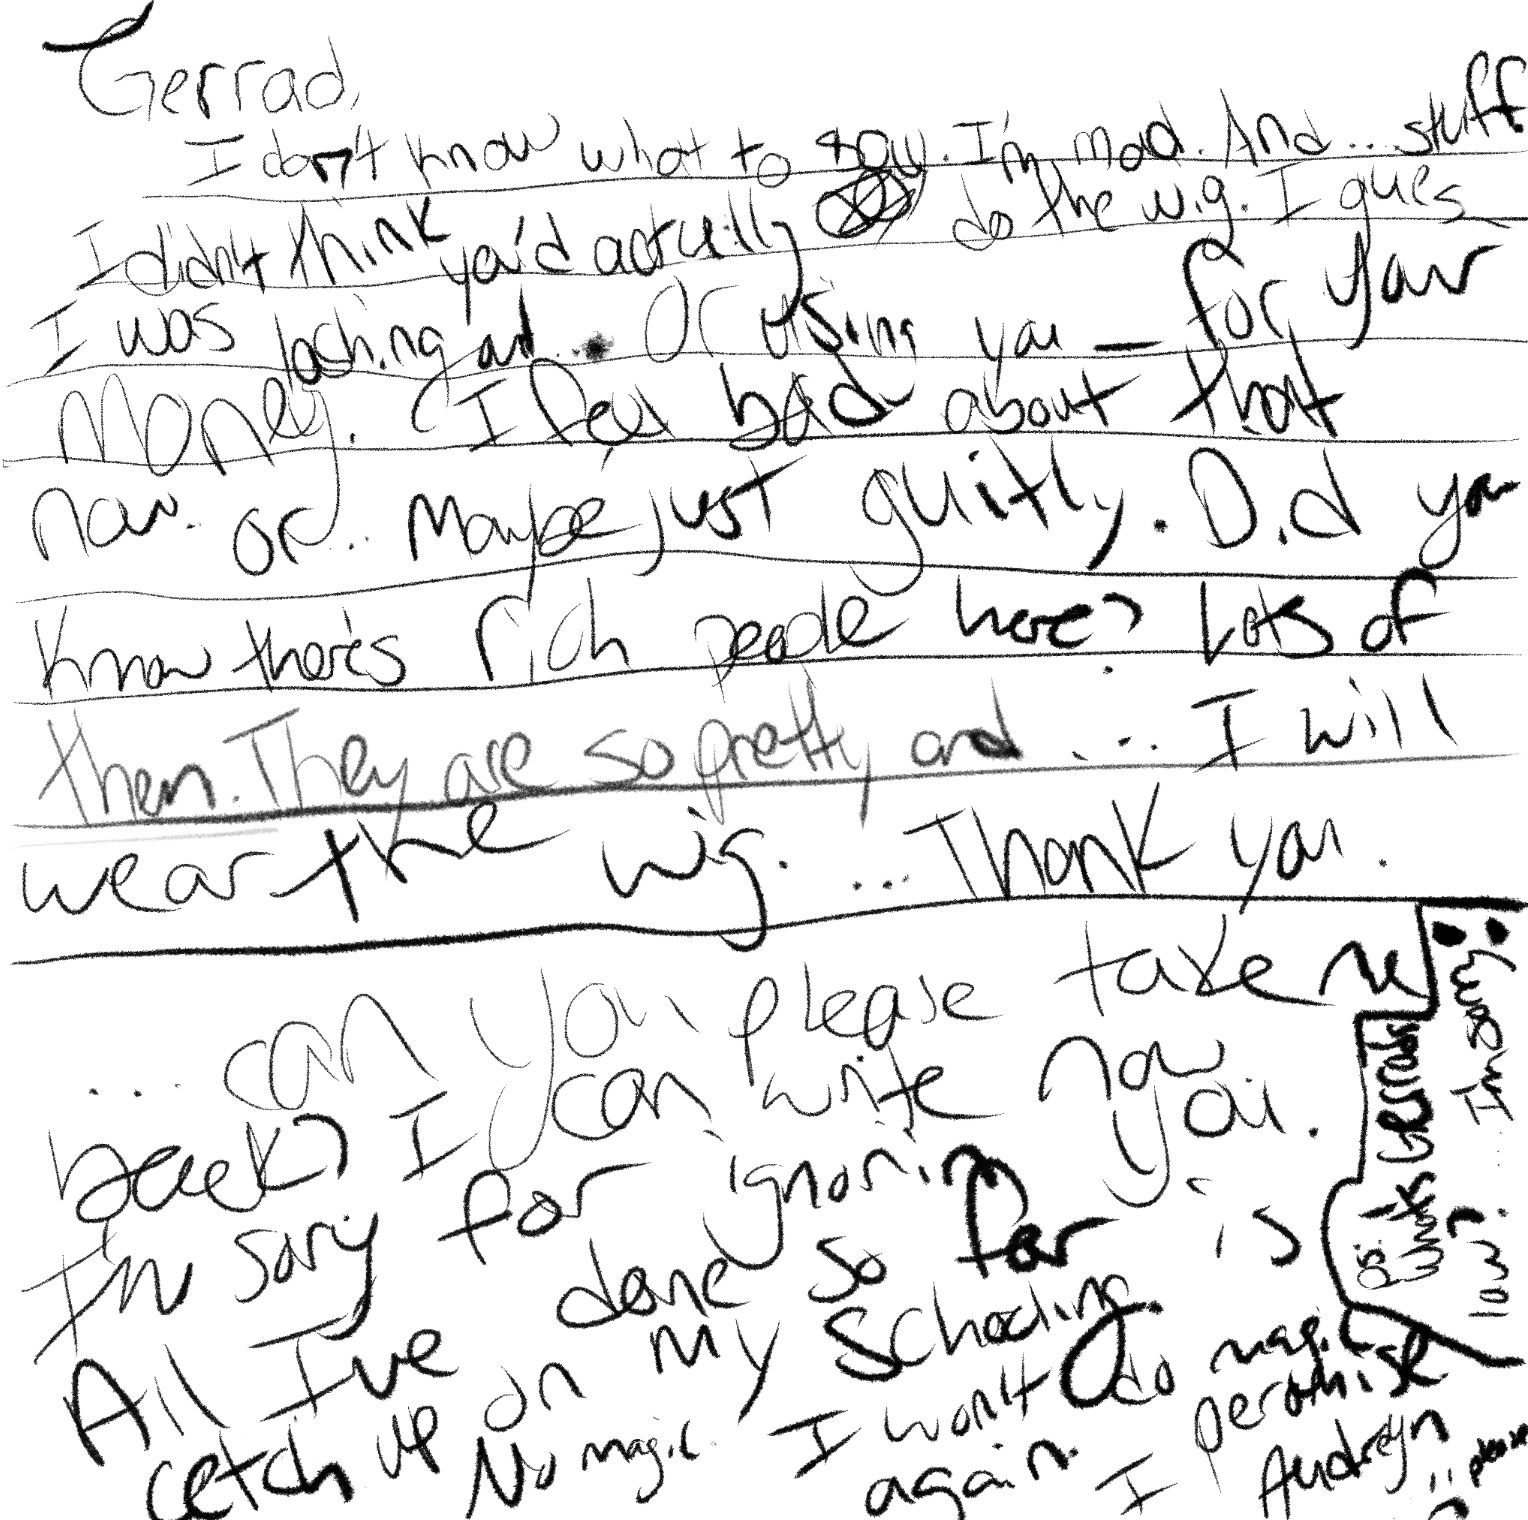 Gerrad,
I don't know what to say. I'm mad. And... stuff
I didn't think you'd actually do the wig. I gues
I was lashing out... Or using you — for your
Money. I feel bad about that
now. or... Maybe just guitly. Did you
know there's rich people here? Lots of
them. They are so pretty and .... I will
wear the wig. ... Thank you.
... can you please take me
back? I can write now
I'm sorry for ignorin you.
All I've done so far is
cetch up on my schooling.
No magic. I won't do magic
again. I peromise
Audreyn
please
ps: Whats Gerrads
law? ... I'm sorry.